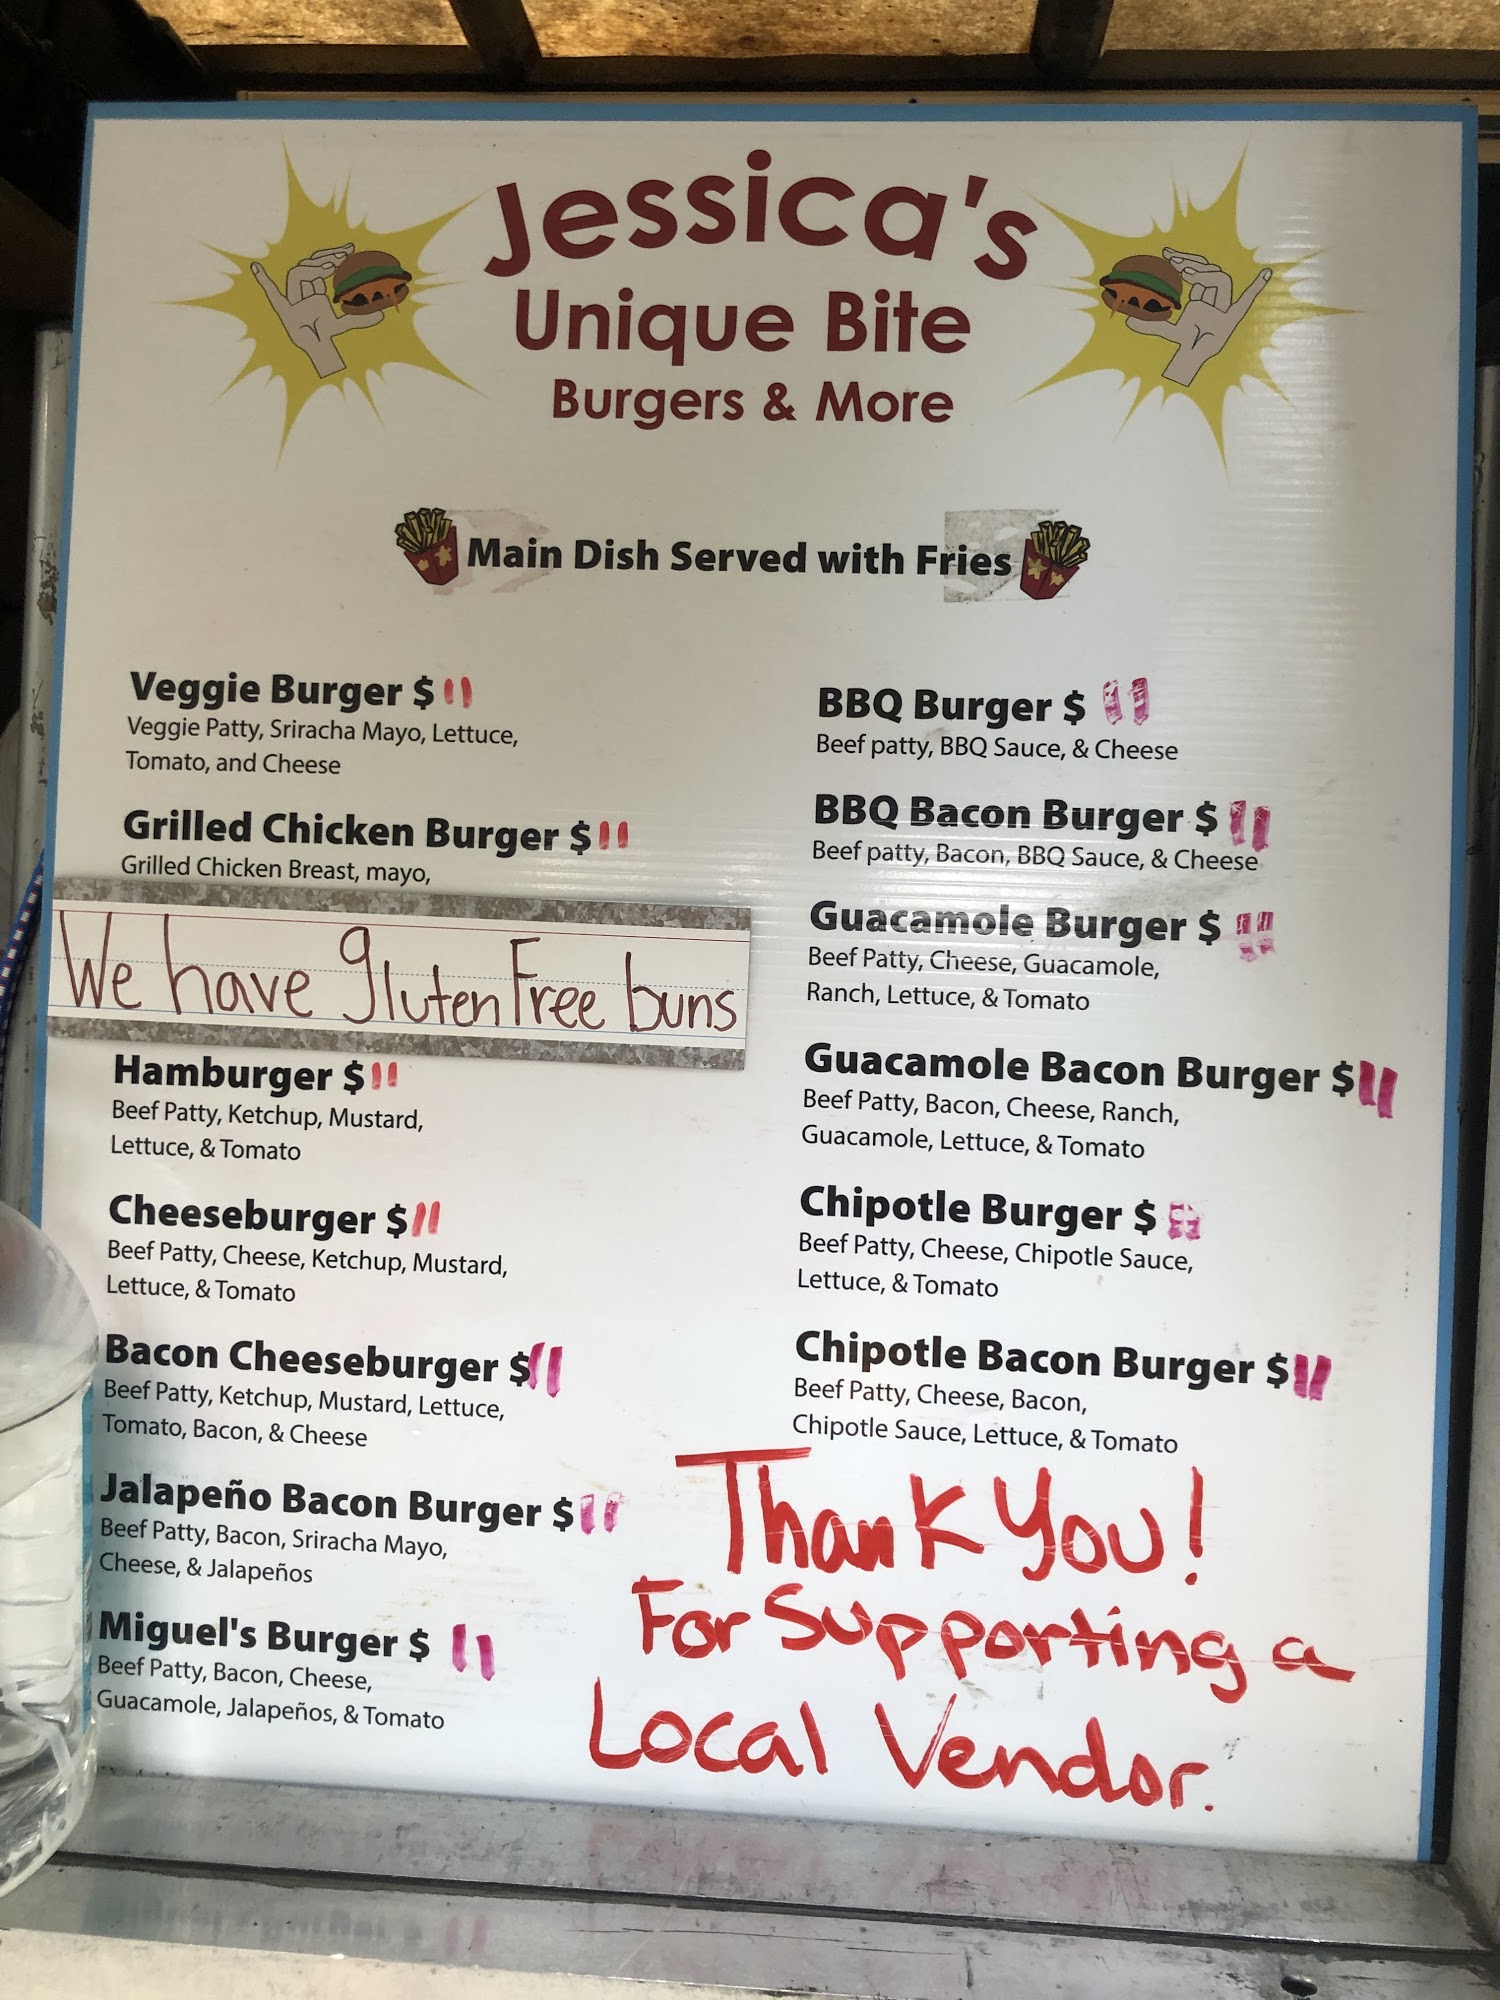 Jessica's
Unique Bite
Burgers & More
Main Dish Served with Fries
Veggie Burger $ 11
Veggie Patty, Sriracha Mayo, Lettuce,
Tomato, and Cheese
Grilled Chicken Burger $ 11
Grilled Chicken Breast, mayo,
We have gluten Free buns
Hamburger $ 11
Beef Patty, Ketchup, Mustard,
Lettuce, & Tomato
Cheeseburger $ 11
Beef Patty, Cheese, Ketchup, Mustard,
Lettuce, & Tomato
Bacon Cheeseburger $ 11
Beef Patty, Ketchup, Mustard, Lettuce,
Tomato, Bacon, & Cheese
Jalapeño Bacon Burger $ 11
Beef Patty, Bacon, Sriracha Mayo,
Cheese, & Jalapeños
Miguel's Burger $ 11
Beef Patty, Bacon, Cheese,
Guacamole, Jalapeños, & Tomato
BBQ Burger $ 11
Beef patty, BBQ Sauce, & Cheese
BBQ Bacon Burger $ 11
Beef patty, Bacon, BBQ Sauce, & Cheese
Guacamole Burger $ 11
Beef Patty, Cheese, Guacamole,
Ranch, Lettuce, & Tomato
Guacamole Bacon Burger $ 11
Beef Patty, Bacon, Cheese, Ranch,
Guacamole, Lettuce, & Tomato
Chipotle Burger $ 11
Beef Patty, Cheese, Chipotle Sauce,
Lettuce, & Tomato
Chipotle Bacon Burger $ 11
Beef Patty, Cheese, Bacon,
Chipotle Sauce, Lettuce, & Tomato
Thank You!
For Supporting a
Local Vendor.